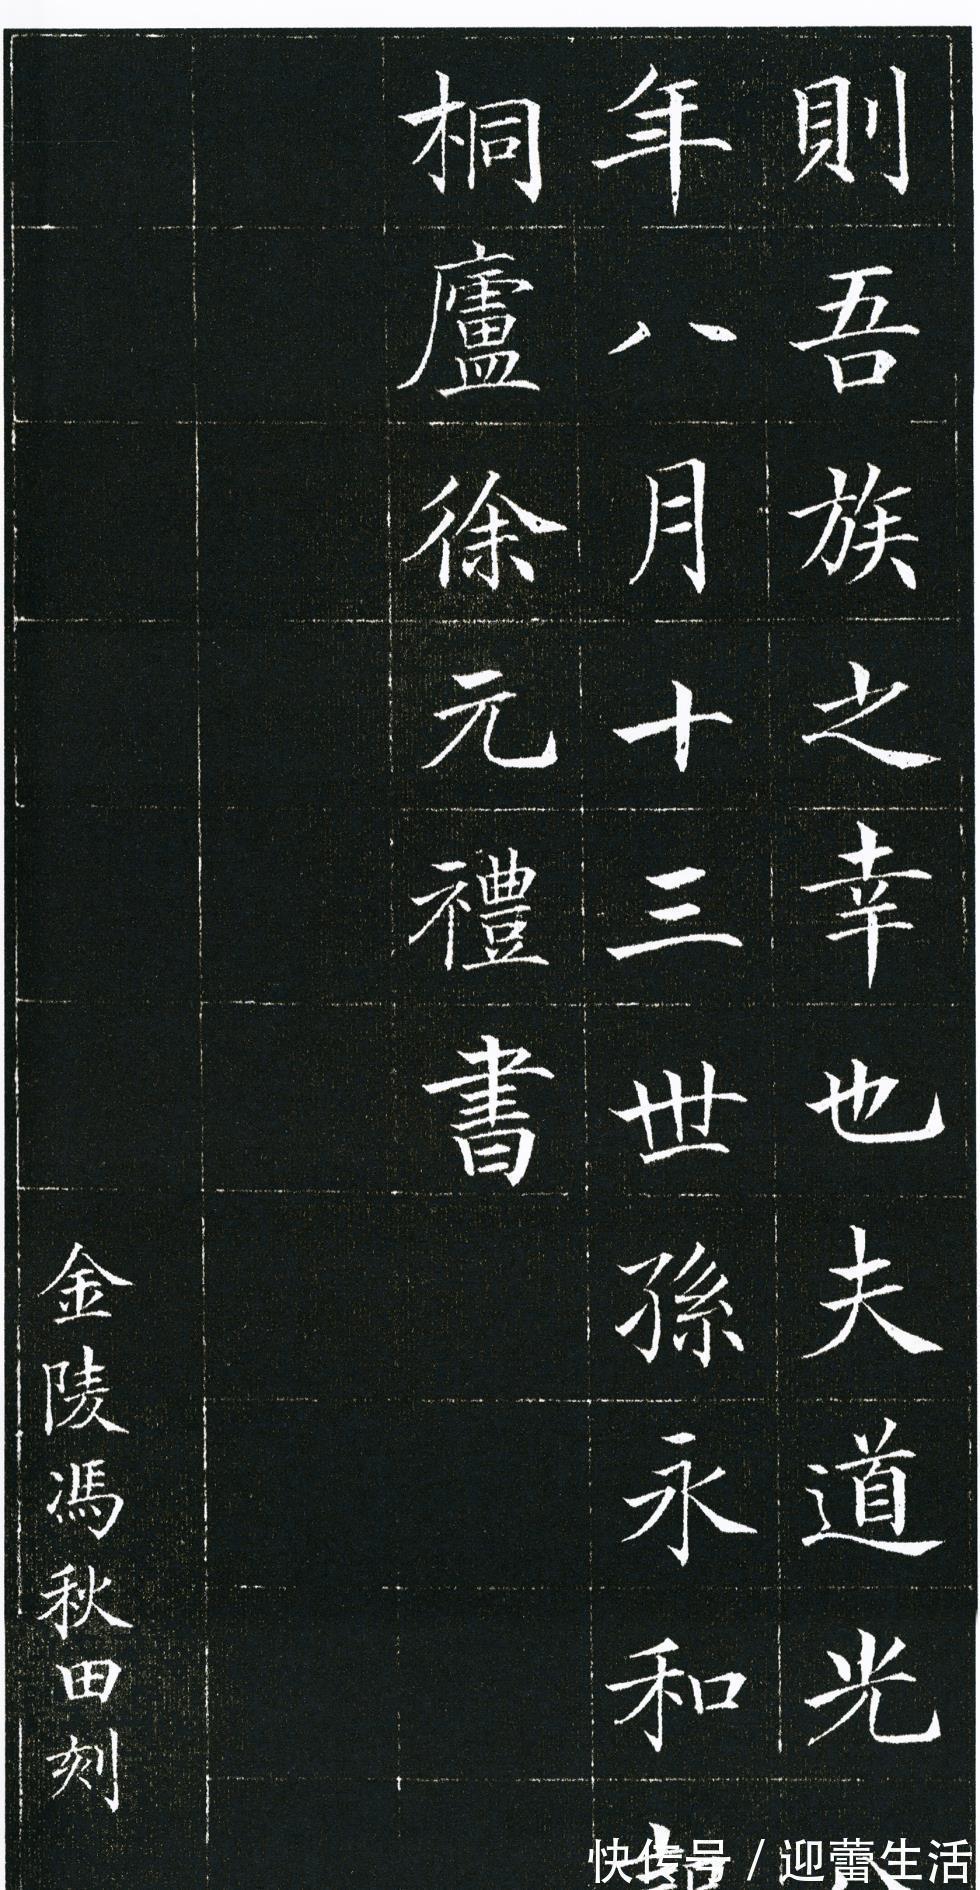 則吾族之幸也夫道光
年八月十三世孫永和
桐廬徐元禮書
金陵馮秋田刻
快传号/迎蕾生活